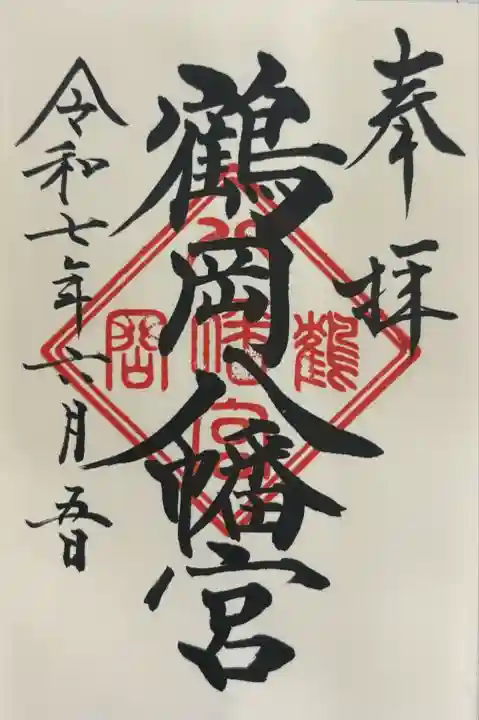 奉拝
鶴岡八幡宮
鶴
岡
令和七年六月五日